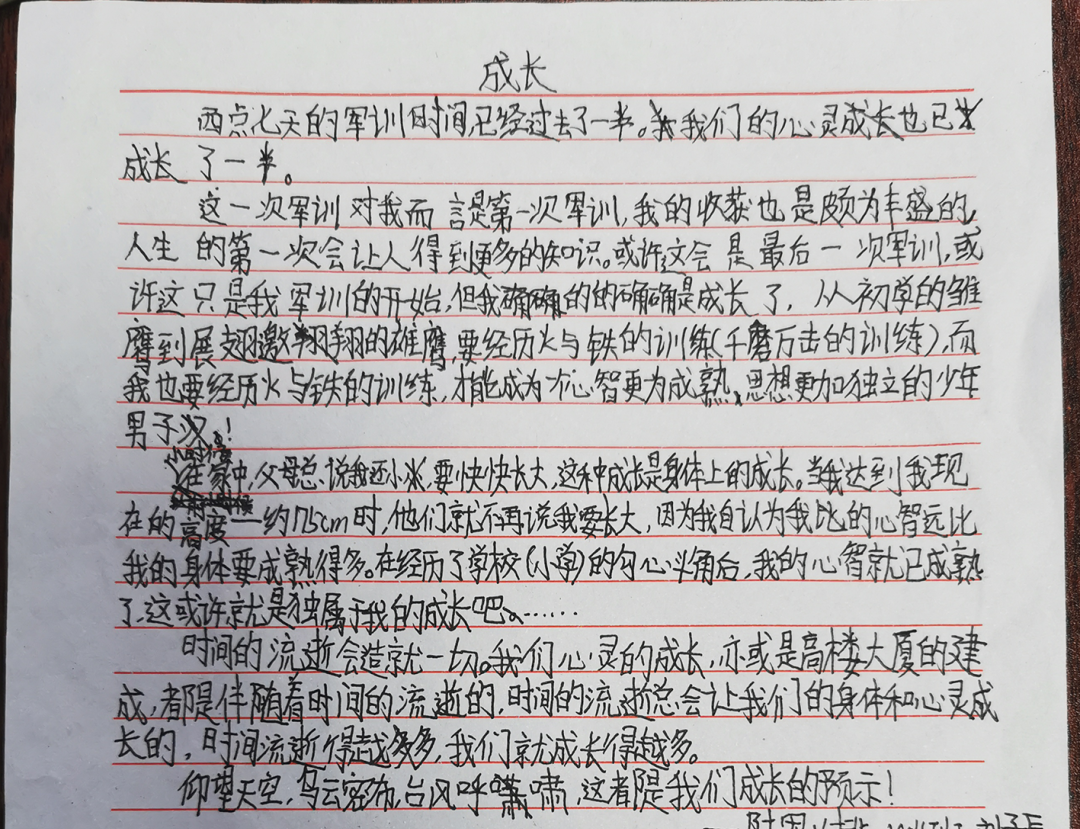 成长
西点七天的军训时间,已经过去了一半。我们的心灵成长也已
成长了一半。
这一次军训对我而言是第一次军训,我的收获也是颇为丰盛的,
人生的第一次会让人得到更多的知识。或许这会是最后一次军训,或
许这只是我军训的开始,但我确确的的确确是成长了,从初学的雏
鹰到展翅遨翔的雄鹰,要经历火与铁的训练(千磨万击的训练),而
我也要经历火与铁的训练,才能成为心智更为成熟、思想更加独立的少年
男子汉!
小时候
在家中,父母总说我还小,要快快长大,这种成长是身体上的成长。当我达到我现
在的高度——约175cm时,他们就不再说我要长大,因为我自认为我比的心智远比
我的身体要成熟得多。在经历了学校(小学)的勾心斗角后,我的心智就已成熟
了,这或许就是独属于我的成长吧。……
时间的流逝会造就一切。我们心灵的成长,亦或是高楼大厦的建
成,都是伴随着时间的流逝的,时间的流逝总会让我们的身体和心灵成
长的,时间流逝得越多多,我们就成长得越多。
仰望天空,乌云密布,台风呼啸,这都是我们成长的预示!